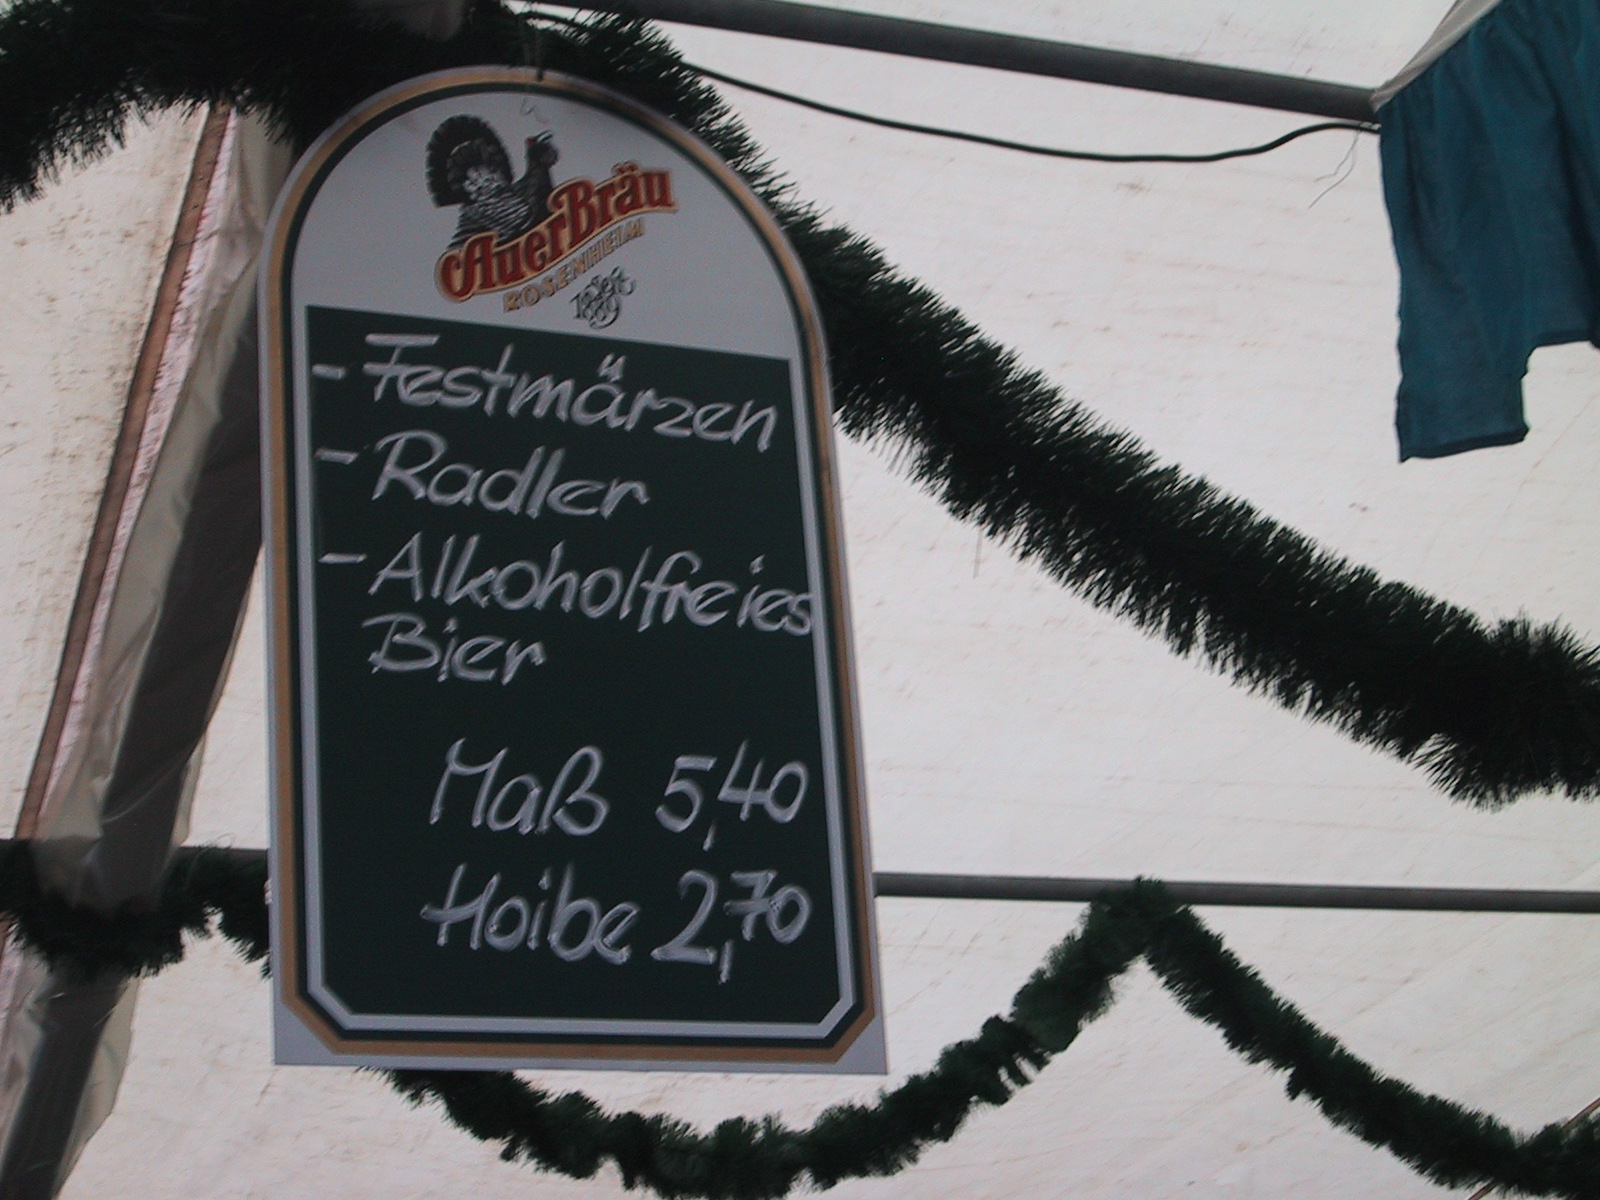 AuerBräu
ROSENHEIM
Seit
1889
- Festmärzen
- Radler
- Alkoholfreies
Bier
Maß 5,40
Hoibe 2,70